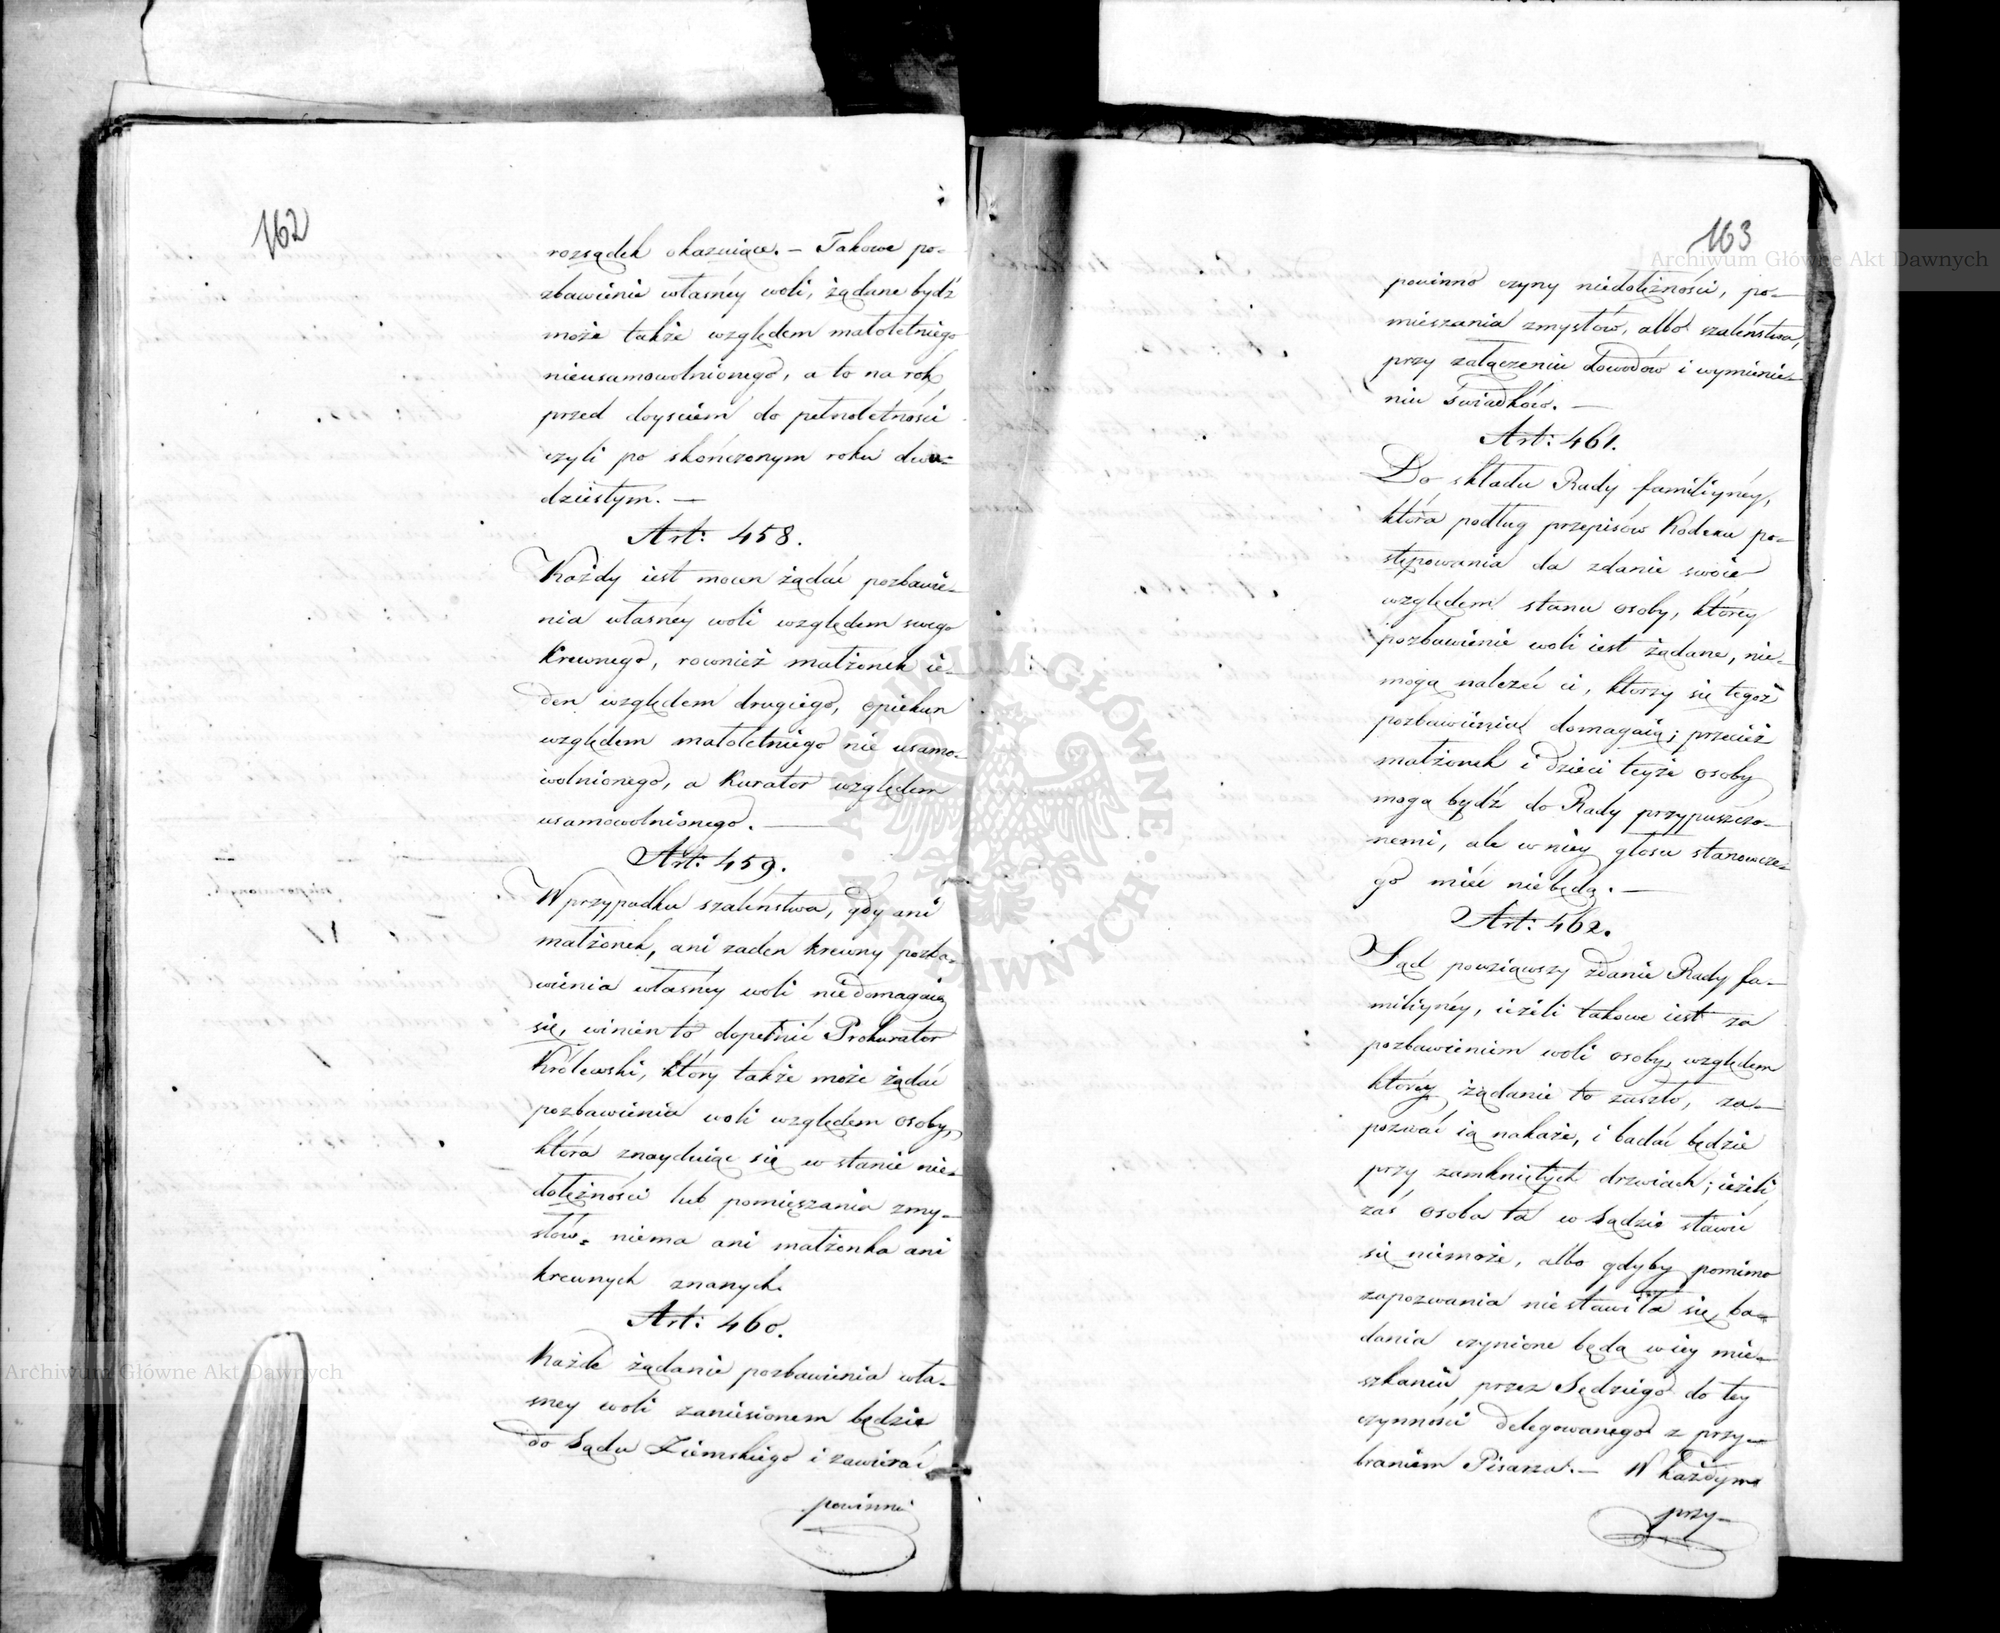 162
rozsądek okazuiące. — Takowe po-
zbawienie własnéy woli, żądane bydź
może także względem małoletniego
nieusamowolnionego, a to na rok
przed doyściem do pełnoletności
czyli po skończonym roku dwu-
dziestym. —
Art: 458.
Każdy iest mocen żądać pozbawie-
nia własnéy woli względem swego
Krewnego, rownież małżonek ie-
den względem drugiego, opiekun
względem małoletniego nie usamo-
wolnionego, a Kurator względem
usamowolnionego. —
Art: 459.
W przypadku szaleństwa, gdy ani
małżonek, ani żaden krewny pozba-
wienia własnéy woli niedomagaią
się, winien to dopełnić Prokurator
Królewski, który także może żądać
pozbawienia woli względem osoby,
która znayduiąc się w stanie nie-
dołężności lub pomięszania zmy-
słów, niema ani małżonka ani
krewnych znanych.
Art: 460.
Każde żądanie pozbawienia wła-
snéy woli zaniesionem będzie
do Sądu Ziemskiego i zawierać
powinno
163
powinno czyny niedołężności, po-
mieszania zmysłów, albo szaleństwa,
przy załączeniu dowodów i wymienie-
niu Świadków. —
Art: 461.
Do składu Rady familiynéy,
która podług przepisów Kodexu po-
stępowania da zdanie swoie
względem stanu osoby, którey
pozbawienie woli iest żądane, nie-
mogą należeć ci, którzy się tegoż
pozbawienia domagaią; przecież
małżonek i dzieci teyże osoby
mogą bydź do Rady przypuszczo-
nemi, ale w niey głosu stanowcze-
go mieć niebędą. —
Art: 462.
Sąd powziąwszy zdanie Rady fa-
miliynéy, ieżeli takowe iest za
pozbawieniem woli osoby, względem
któréy żądanie to zaszło, za-
pozwać ią nakaże, i badać będzie
przy zamkniętych drzwiach; ieżeli
zaś osoba ta w Sądzie stawić
się niemoże, albo gdyby pomimo
zapozwania niestawiła się, ba-
dania czynione będą w iey mie-
szkaniu przez Sędziego do tey
czynności delegowanego z przy-
braniem Pisarza. — W każdym
przy-
Archiwum Główne Akt Dawnych
Archiwum Główne Akt Dawnych
ARCHIWUM GŁÓWNE AKT DAWNYCH